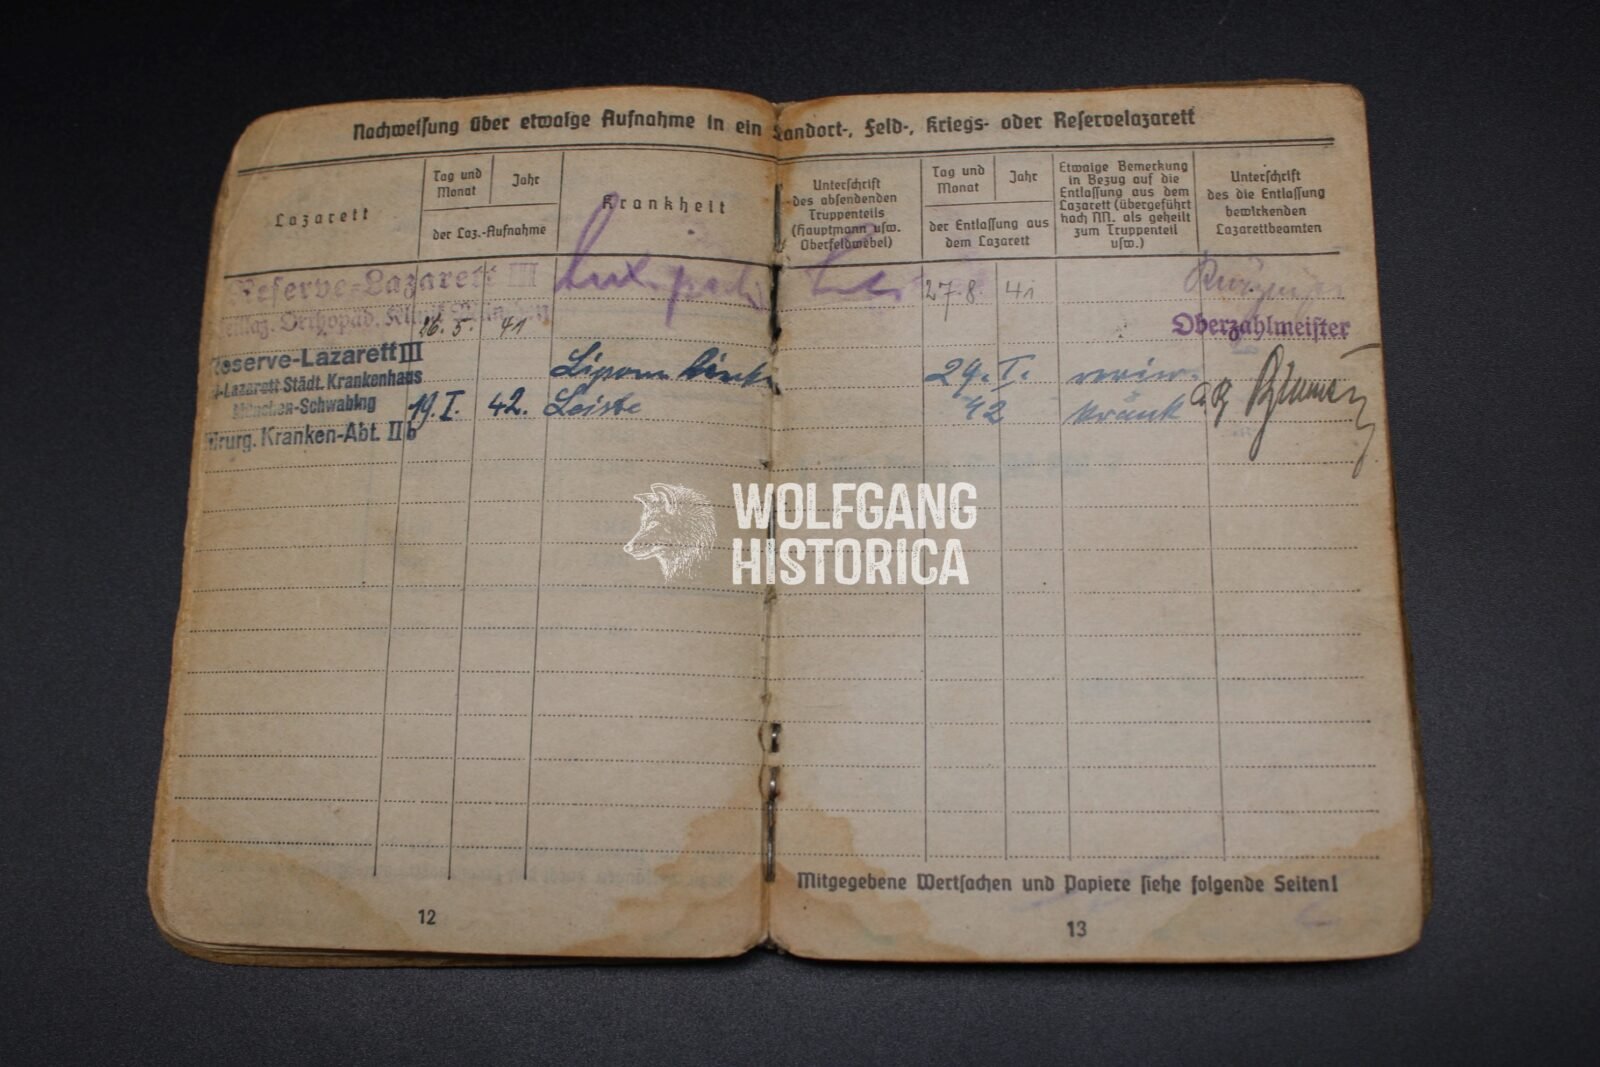 Nachweisung über etwaige Aufnahme in ein Standort-, Feld-, Kriegs- oder Reservelazarett
Lazarett
Tag und Monat
Jahr
der Laz.-Aufnahme
Krankheit
Unterschrift
des absendenden
Truppenteils
(Hauptmann usw.
Oberfeldwebel)
Tag und Monat
Jahr
der Entlassung aus
dem Lazarett
Etwaige Bemerkung
in Bezug auf die
Entlassung aus dem
Lazarett (übergeführt
nach NN. als geheilt
zum Truppenteil
usw.)
Unterschrift
des die Entlassung
bewirkenden
Lazarettbeamten
Reserve-Lazarett III
Orthopäd.
26.5. 41
27.8. 41
Oberzahlmeister
Reserve-Lazarett III
-Lazarett Städt. Krankenhaus
München-Schwabing
Chirurg. Kranken-Abt. II b
19. I. 42.
Lipom
Leiste
29. I.
42
WOLFGANG
HISTORICA
Mitgegebene Wertsachen und Papiere siehe folgende Seiten!
12
13